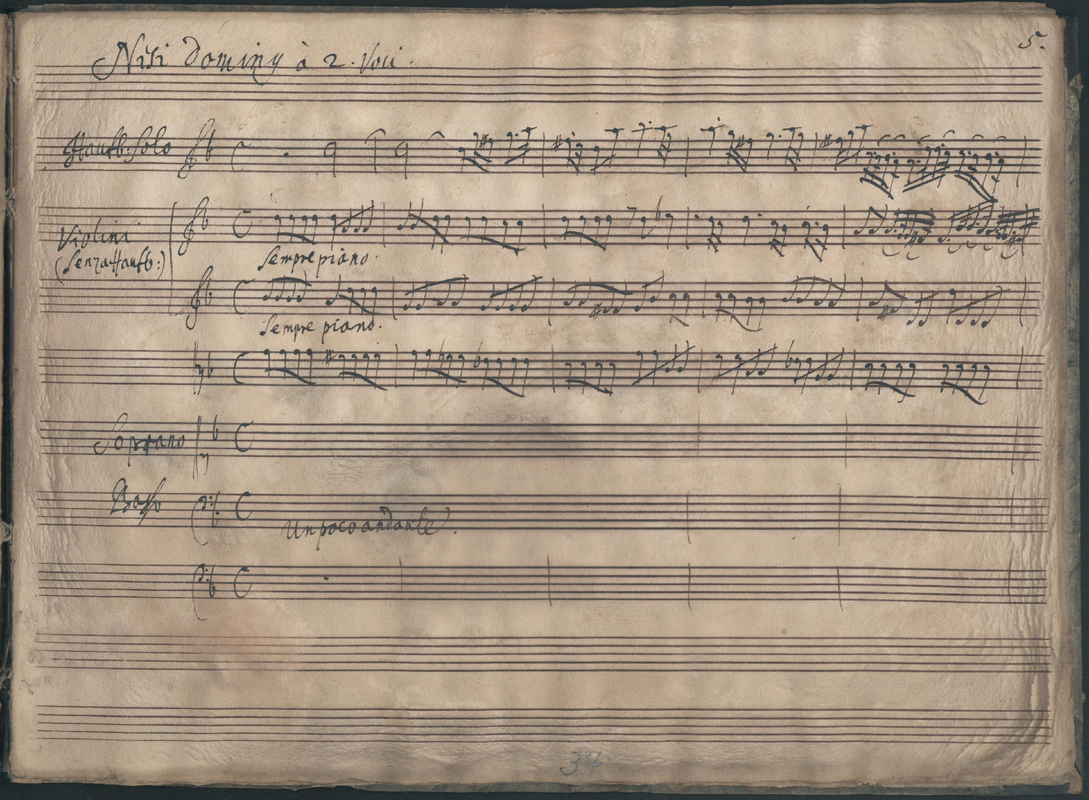 Nisi Dominy à 2. Voci.
5.
Hautb: Solo
Violini
(Senza Hautb:)
Sempre piano.
Sempre piano.
Soprano
Basso
Un poco andante.
34